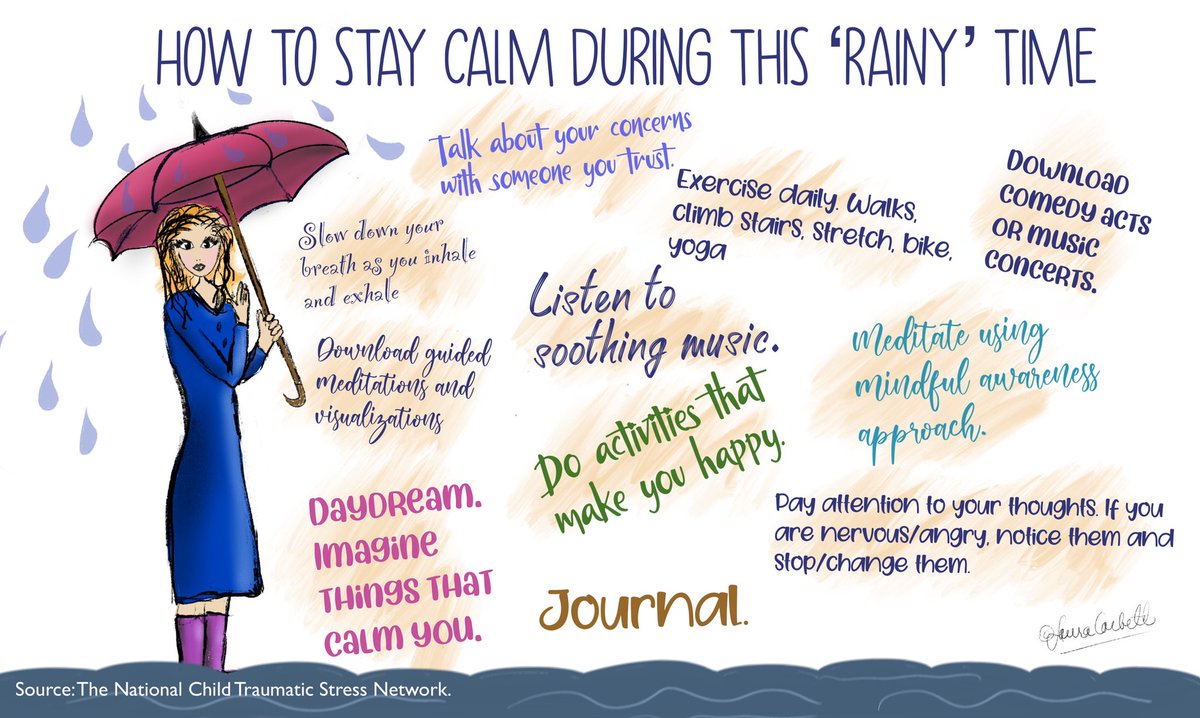 HOW TO STAY CALM DURING THIS ‘RAINY’ TIME
Talk about your concerns
with someone you trust.
Exercise daily. Walks,
climb stairs, stretch, bike,
yoga
Download
comedy acts
or music
concerts.
Slow down your
breath as you inhale
and exhale
Listen to
soothing music.
Meditate using
mindful awareness
approach.
Download guided
meditations and
visualizations
Do activities that
make you happy.
Daydream.
Imagine
things that
calm you.
Pay attention to your thoughts. If you
are nervous/angry, notice them and
stop/change them.
Journal.
©Laura Corbeth
Source: The National Child Traumatic Stress Network.